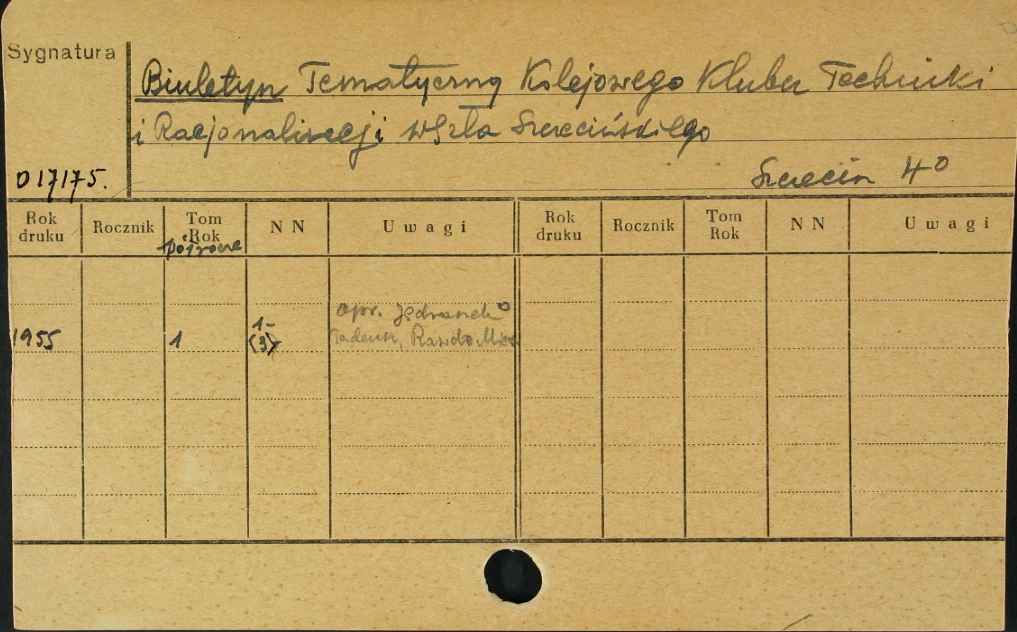 Sygnatura
Biuletyn Tematyczny Kolejowego Klubu Techniki
i Racjonalizacji węzła Szczecińskiego
D 17175.
Szczecin 4°
Rok druku Rocznik Tom Rok NN Uwagi Rok druku Rocznik Tom Rok NN Uwagi
półrocze
opr.
1955 1 1-(3) Tadeusz,